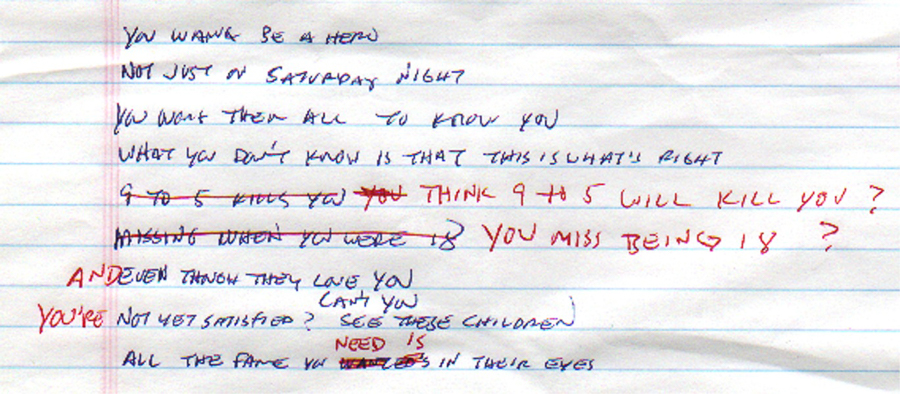 YOU WANNA BE A HERO
NOT JUST ON SATURDAY NIGHT
YOU WANT THEM ALL TO KNOW YOU
WHAT YOU DON'T KNOW IS THAT THIS IS WHAT'S RIGHT
9 TO 5 KILLS YOU YOU THINK 9 TO 5 WILL KILL YOU?
MISSING WHEN YOU WERE 18? YOU MISS BEING 18 ?
AND EVEN THOUGH THEY LOVE YOU
CAN'T YOU
YOU'RE NOT YET SATISFIED? SEE THESE CHILDREN
NEED IS
ALL THE FAME YOU IN THEIR EYES